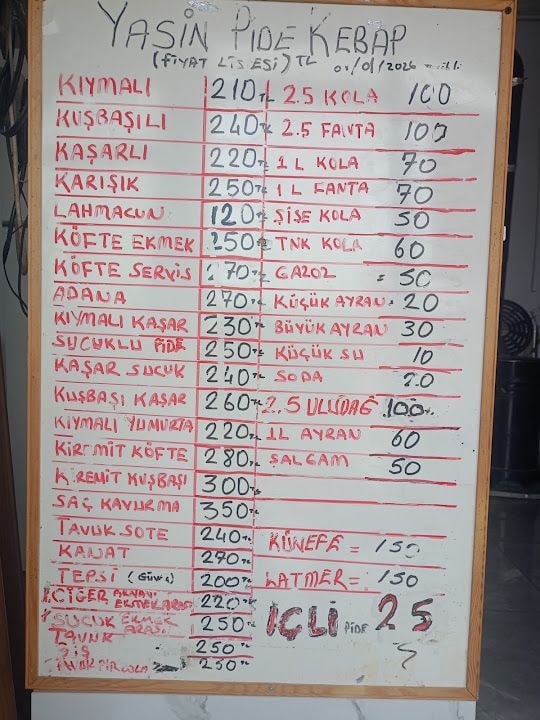 YASİN PİDE KEBAP
(FİYAT LİSTESİ) TL 01/01/2026
KIYMALI 210TL 2.5 KOLA 100
KUŞBAŞILI 240TL 2.5 FANTA 100
KAŞARLI 220TL 1 L KOLA 70
KARIŞIK 250TL 1 L FANTA 70
LAHMACUN 120TL ŞİŞE KOLA 50
KÖFTE EKMEK 250TL TNK KOLA 60
KÖFTE SERVİS 70TL GAZOZ = 50
ADANA 270TL KÜÇÜK AYRAN 20
KIYMALI KAŞAR 230TL BÜYÜK AYRAN 30
SUCUKLU PİDE 250TL KÜÇÜK SU 10
KAŞAR SUCUK 240TL SODA 20
KUŞBAŞI KAŞAR 260TL 2.5 ULUDAĞ 100
KIYMALI YUMURTA 220TL 1L AYRAN 60
KİREMİT KÖFTE 280TL ŞALGAM 50
KİREMİT KUŞBAŞI 300TL
SAÇ KAVURMA 350TL
TAVUK SOTE 240TL KÜNEFE = 150
KANAT 290TL
TEPSİ 200TL LATMER = 150
CİĞER ARNAVUT EKMEK ARASI 220TL
SUCUK EKMEK ARASI 250TL İÇLİ PİDE 25
TAVUK ŞİŞ 250TL
250TL